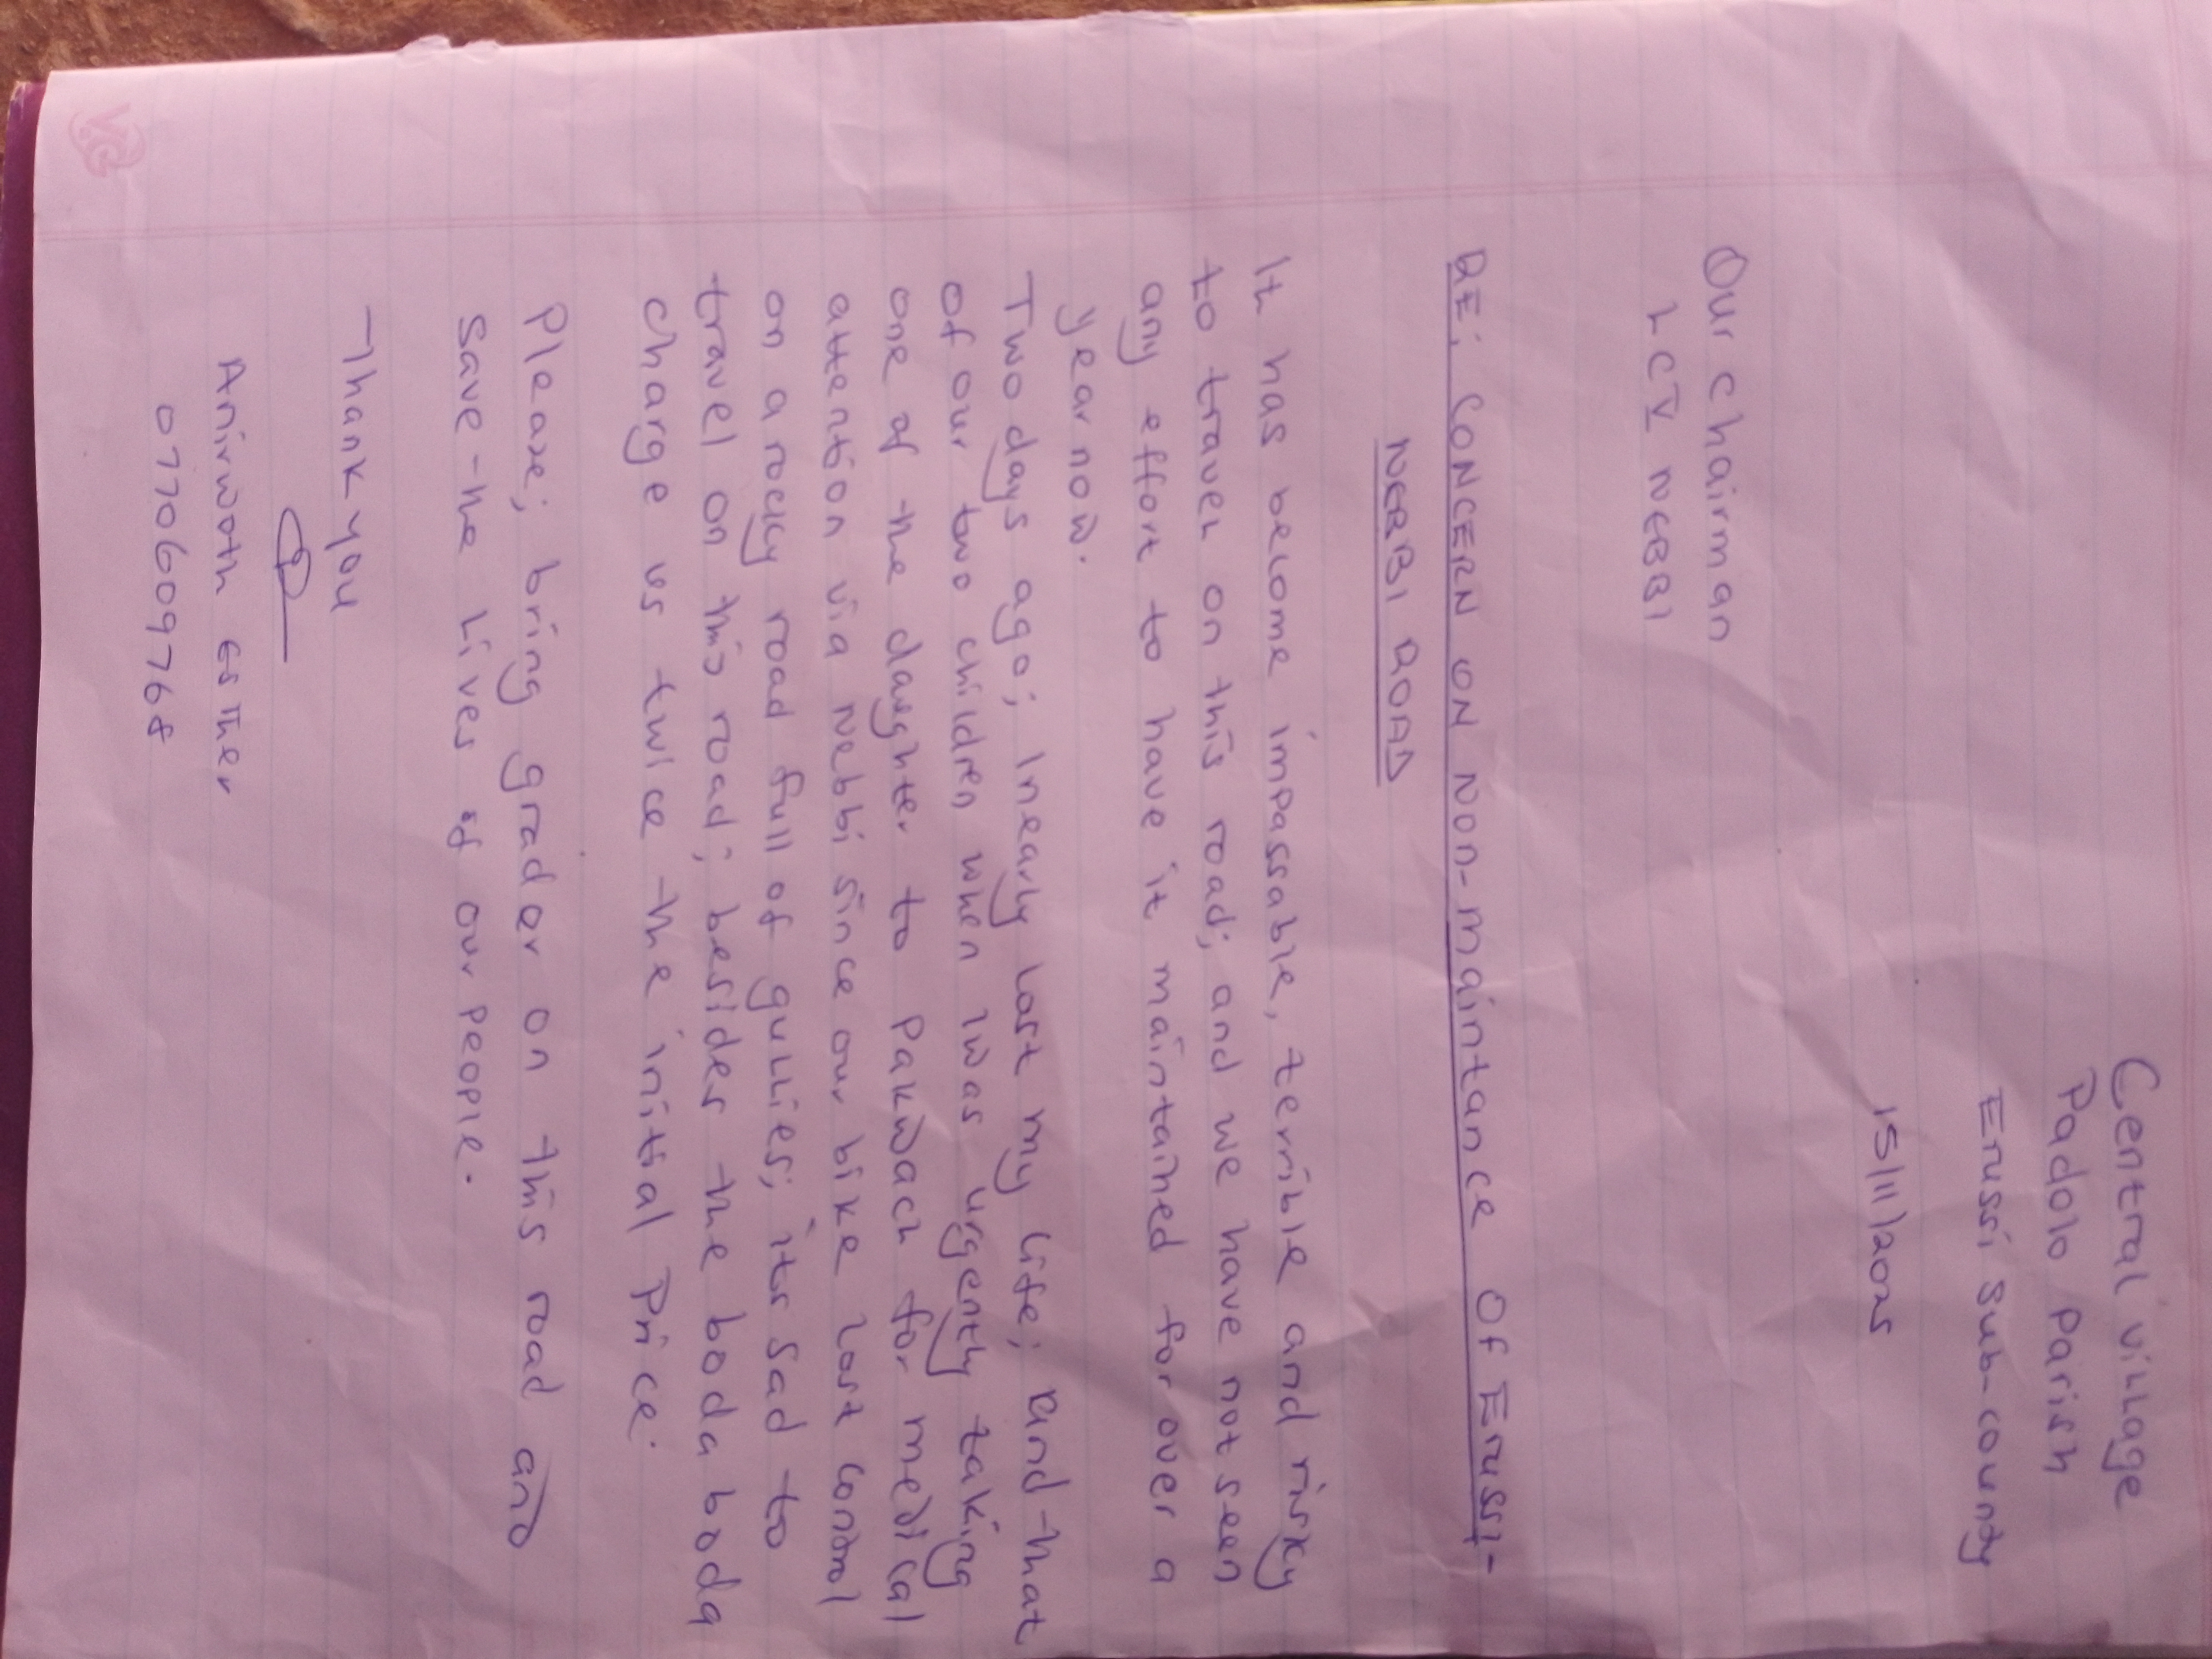 Central village
Padolo Parish
Erussi sub-county
15/11/2025
Our chairman
LCV NEBBI
RE: CONCERN ON NON-maintance OF Erussi-
NEBBI ROAD
It has become impassable, terrible and risky
to travel on this road; and we have not seen
any effort to have it maintained for over a
year now.
Two days ago; Inearly lost my life; and that
of our two children when Iwas urgently taking
one of the daughter to Pakwach for medical
attention via Nebbi since our bike lost control
on a rocky road full of gullies; its sad to
travel on this road; besides the boda boda
charge us twice the initial Price.
Please; bring grader on this road and
save the lives of our people.
Thank you
Anirwoth Esther
0770609768